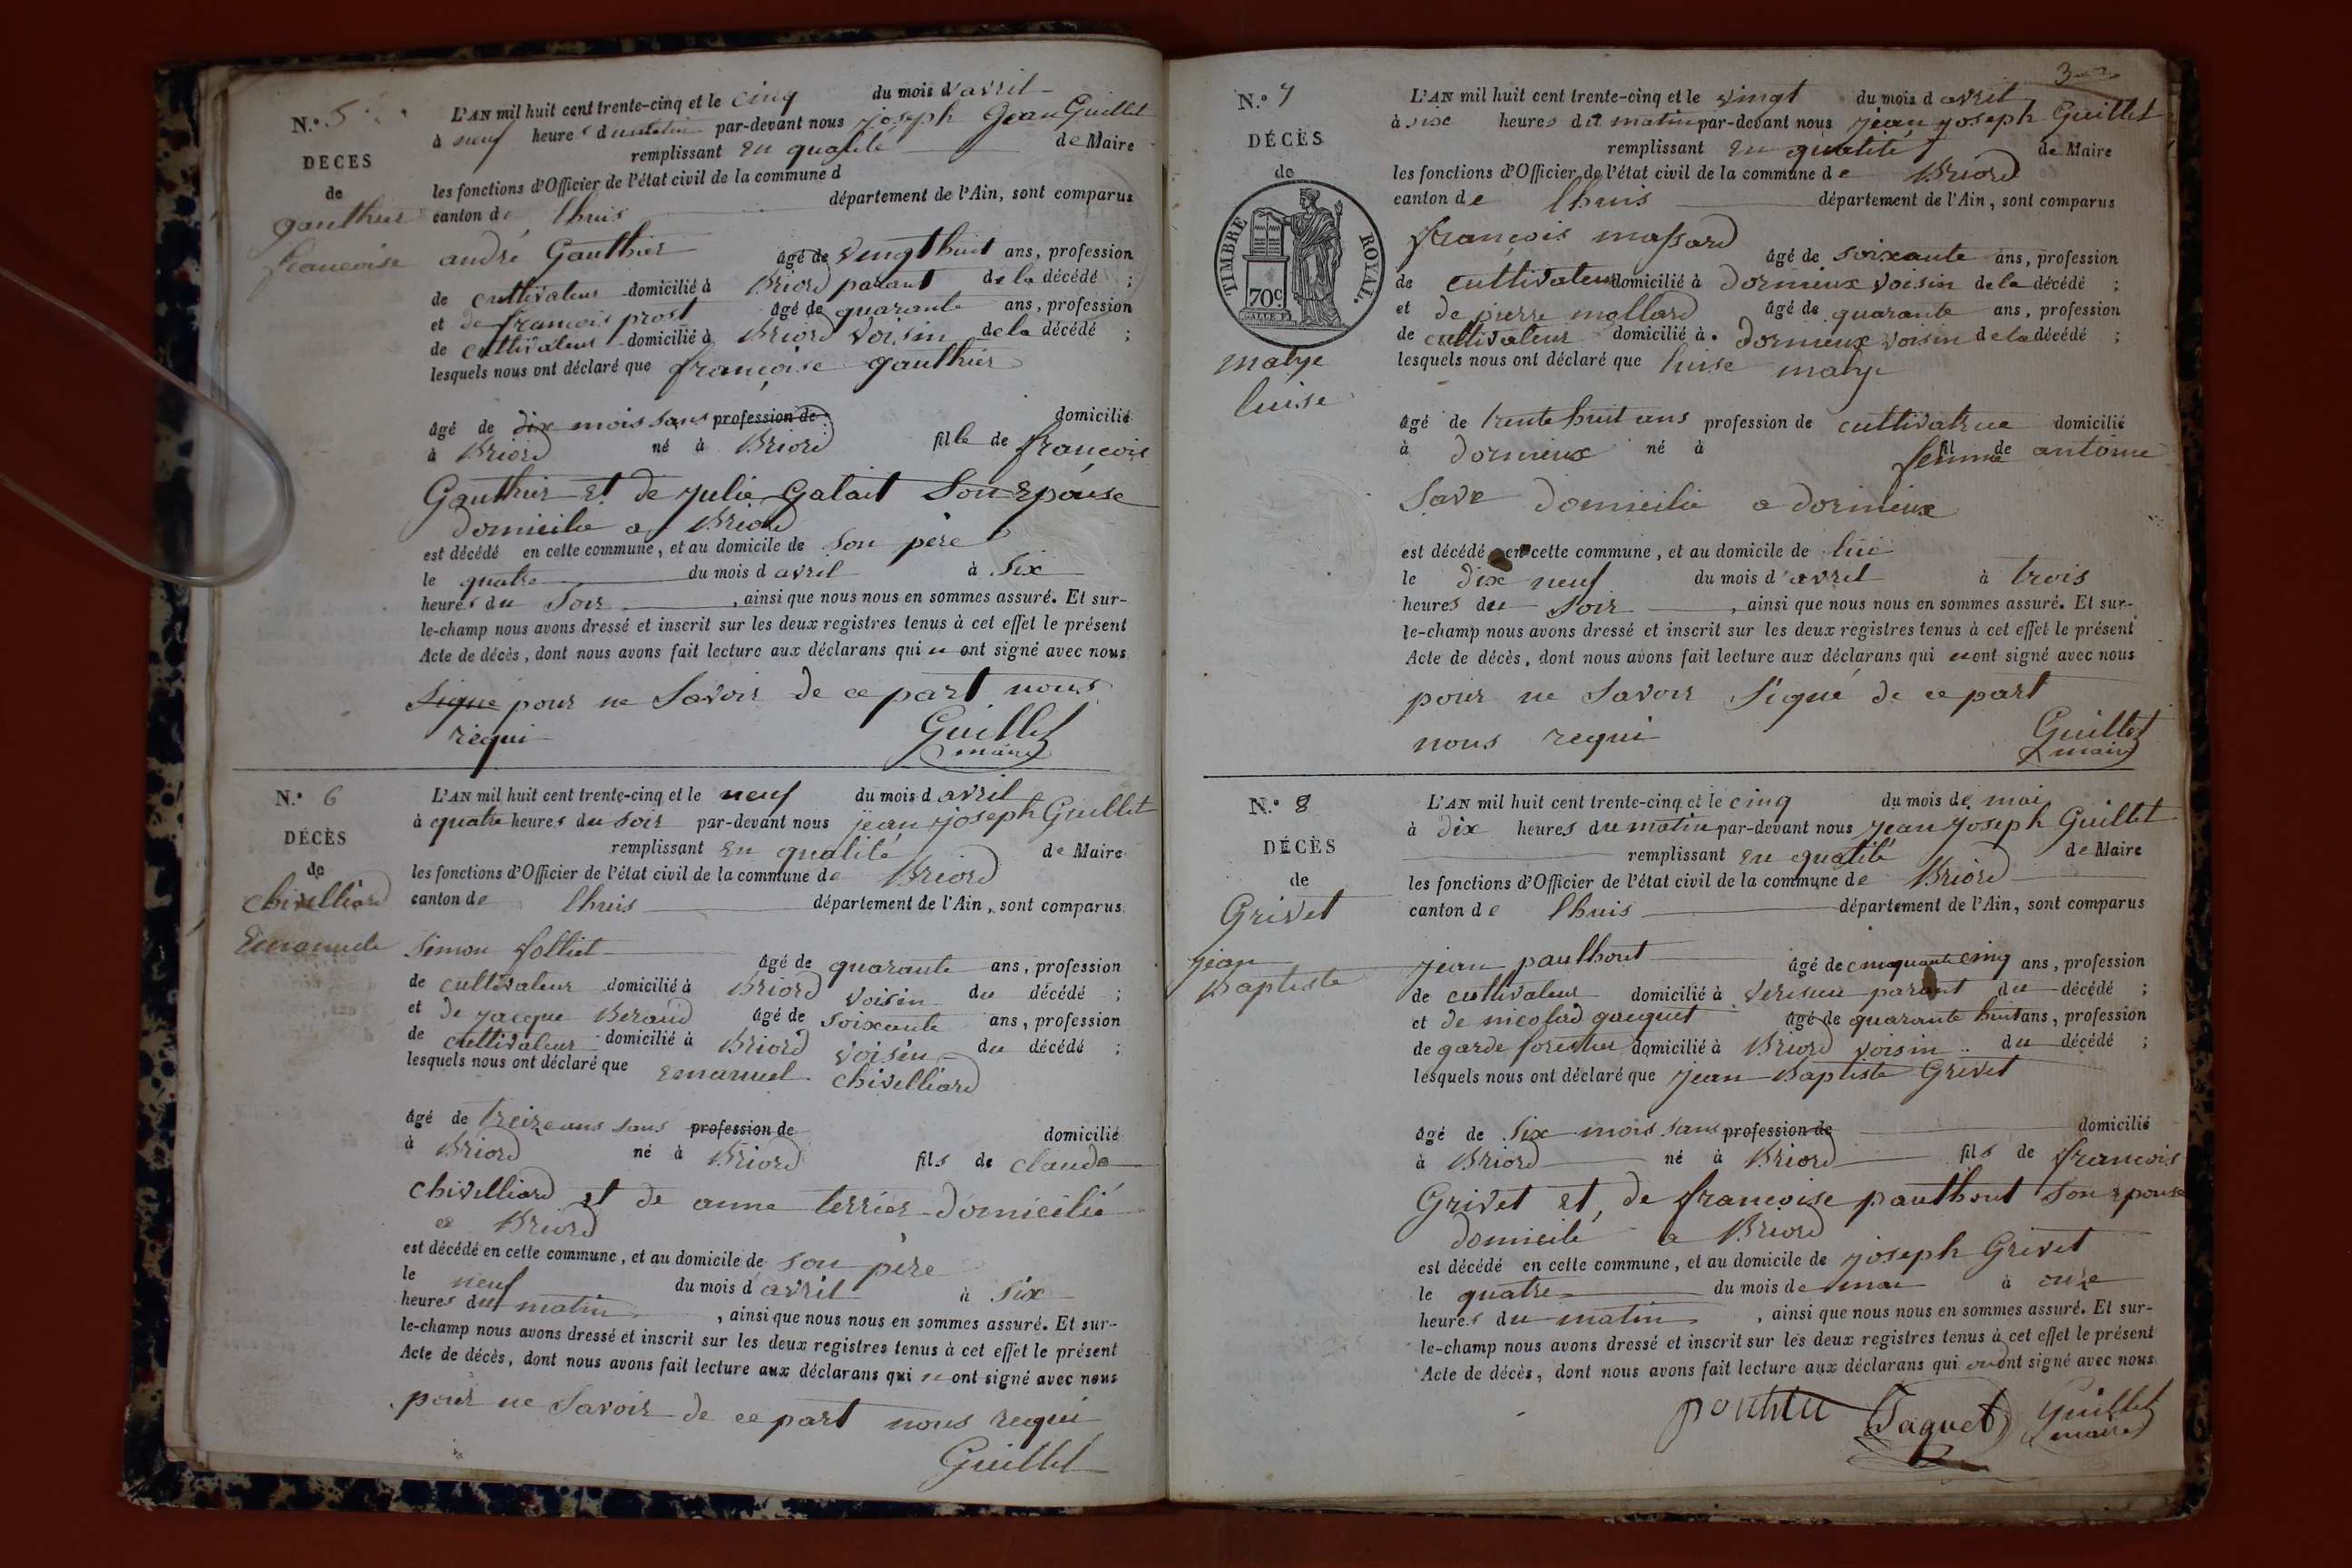 N.° 5
DÉCÈS
de
gauthier
francoise
L'AN mil huit cent trente-cinq et le cinq du mois d avril
à neuf heures du matin par-devant nous joseph Jean Guillet
remplissant en qualité de Maire
les fonctions d'Officier de l'état civil de la commune d
canton de lhuis département de l'Ain, sont comparus
andré Gauthier
âgé de vingt huit ans, profession
de cultivateur domicilié à Briord parant de la décédé ;
et de francois prost âgé de quarante ans, profession
de cultivateur domicilié à Briord voisin de la décédé ;
lesquels nous ont déclaré que françoise gauthier
âgé de dix mois sans profession de domicilié
à Briord né à Briord fille de francois
Gauthier et de julie Galait son epouse
domicilie a Briord
est décédé en cette commune, et au domicile de son père
le quatre du mois d avril à six
heures du soir, ainsi que nous nous en sommes assuré. Et sur-
le-champ nous avons dressé et inscrit sur les deux registres tenus à cet effet le présent
Acte de décès, dont nous avons fait lecture aux déclarans qui n ont signé avec nous
signe pour ne savoir de ce part nous
requi
Guillet
maire
N.° 6
DÉCÈS
de
Chivilliard
Emanuele
L'AN mil huit cent trente-cinq et le neuf du mois d avril
à quatre heures du soir par-devant nous jean joseph Guillet
remplissant en qualité de Maire
les fonctions d'Officier de l'état civil de la commune de Briord
canton de lhuis département de l'Ain, sont comparus
Simon folliet
âgé de quarante ans, profession
de cultivateur domicilié à Briord voisin du décédé ;
et de jacque Beraud âgé de soixante ans, profession
de cultivateur domicilié à Briord voisin du décédé ;
lesquels nous ont déclaré que emanuel chivilliard
âgé de treize ans sans profession de domicilié
à Briord né à Briord fils de claude
chivilliard et de anne terrier domicilié
a Briord
est décédé en cette commune, et au domicile de son père
le neuf du mois d avril à six
heures du matin, ainsi que nous nous en sommes assuré. Et sur-
le-champ nous avons dressé et inscrit sur les deux registres tenus à cet effet le présent
Acte de décès, dont nous avons fait lecture aux déclarans qui n ont signé avec nous
pour ne savoir de ce part nous requi
Guillet
3
N.° 7
DÉCÈS
de
TIMBRE ROYAL.
70c
matye
luise
L'AN mil huit cent trente-cinq et le vingt du mois d avril
à six heures du matin par-devant nous jean joseph Guillet
remplissant en qualité de Maire
les fonctions d'Officier de l'état civil de la commune de Briord
canton de lhuis département de l'Ain, sont comparus
françois massard
âgé de soixante ans, profession
de cultivateur domicilié à dornieux voisin de la décédé ;
et de pierre mollard âgé de quarante ans, profession
de cultivateur domicilié à dornieux voisin de la décédé ;
lesquels nous ont déclaré que luise matye
âgé de trente huit ans profession de cultivatrice domicilié
à dornieux né à femme fil de antoine
Save domicilié a dornieux
est décédé en cette commune, et au domicile de lui
le dix neuf du mois d avril à trois
heures du soir, ainsi que nous nous en sommes assuré. Et sur-
le-champ nous avons dressé et inscrit sur les deux registres tenus à cet effet le présent
Acte de décès, dont nous avons fait lecture aux déclarans qui n ont signé avec nous
pour ne savoir signé de ce part
nous requi
Guillet
maire
N.° 8
DÉCÈS
de
Grivet
jean
Baptiste
L'AN mil huit cent trente-cinq et le cinq du mois de mai
à dix heures du matin par-devant nous jean joseph Guillet
remplissant en qualité de Maire
les fonctions d'Officier de l'état civil de la commune de Briord
canton de lhuis département de l'Ain, sont comparus
jean paulhout
âgé de cinquante cinq ans, profession
de cultivateur domicilié à verisieu parant du décédé ;
et de nicolad gacquet âgé de quarante huit ans, profession
de garde forestier domicilié à Briord voisin du décédé ;
lesquels nous ont déclaré que jean Baptiste Grivet
âgé de six mois sans profession de domicilié
à Briord né à Briord fils de francois
Grivet et de françoise pauthout son epouse
domicilé a Briord
est décédé en cette commune, et au domicile de joseph Grivet
le quatre du mois de mai à onze
heures du matin, ainsi que nous nous en sommes assuré. Et sur-
le-champ nous avons dressé et inscrit sur les deux registres tenus à cet effet le présent
Acte de décès, dont nous avons fait lecture aux déclarans qui ont signé avec nous
Jaquet Guillet
maire